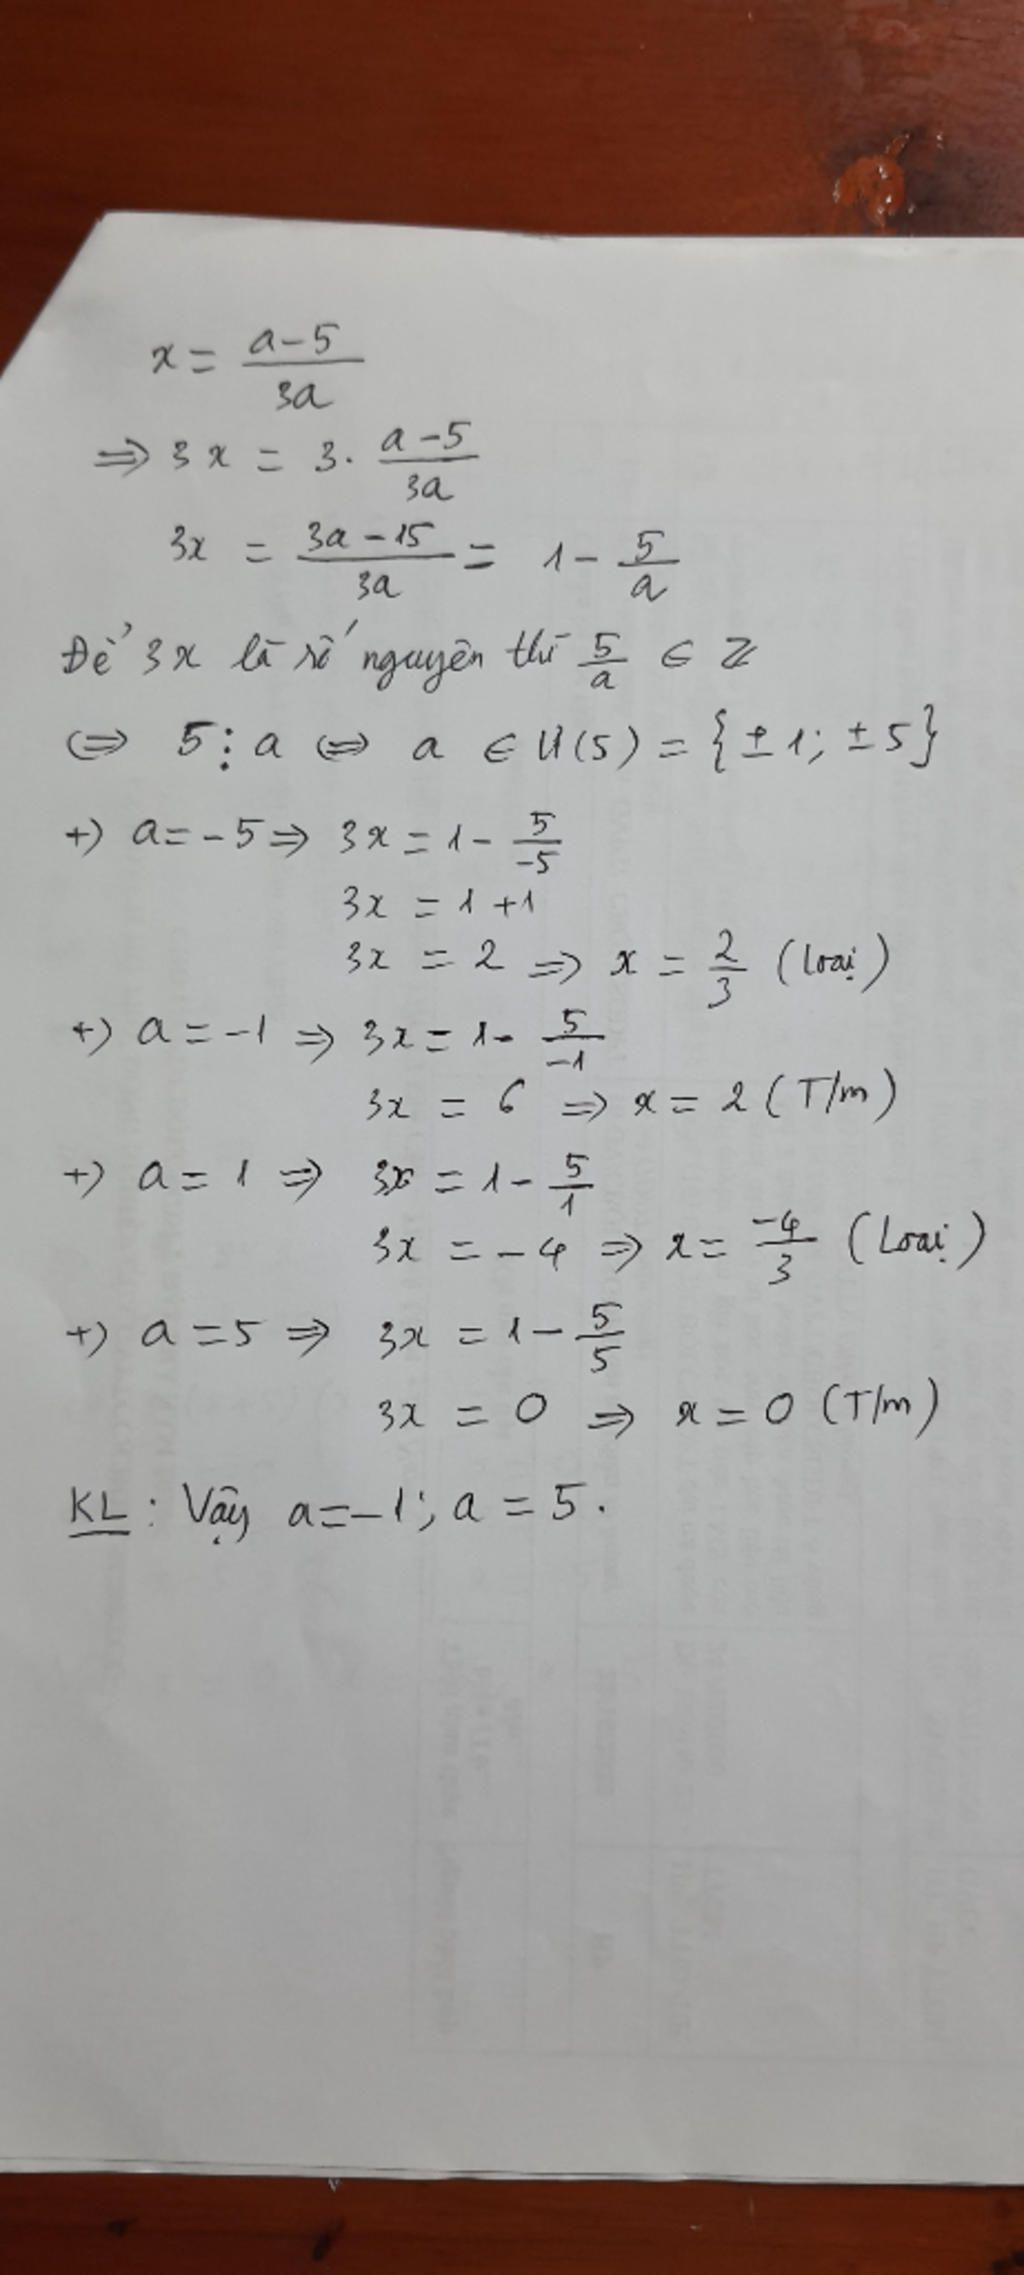 x = \frac{a-5}{3a}
⇒ 3x = 3. \frac{a-5}{3a}
3x = \frac{3a-15}{3a} = 1 - \frac{5}{a}
Để 3x là số nguyên thì \frac{5}{a} ∈ Z
⇔ 5 ⋮ a ⇔ a ∈ Ư(5) = {±1; ±5}
+) a = -5 ⇒ 3x = 1 - \frac{5}{-5}
3x = 1 + 1
3x = 2 ⇒ x = \frac{2}{3} (loại)
+) a = -1 ⇒ 3x = 1 - \frac{5}{-1}
3x = 6 ⇒ x = 2 (T/m)
+) a = 1 ⇒ 3x = 1 - \frac{5}{1}
3x = -4 ⇒ x = \frac{-4}{3} (Loại)
+) a = 5 ⇒ 3x = 1 - \frac{5}{5}
3x = 0 ⇒ x = 0 (T/m)
KL: Vậy a = -1; a = 5.